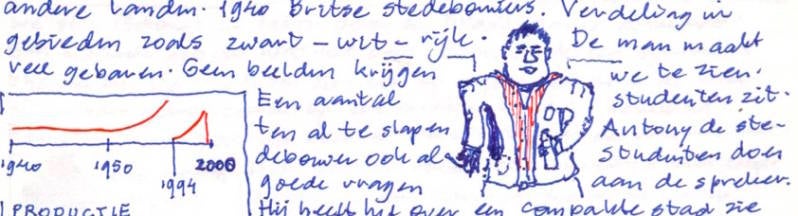 andere landen. 1940 Britse stedebouwers. Verdeling in
gebieden zoals zwart - wit - rijk. De man maakt
veel gebaren. Geen beelden krijgen we te zien.
Een aantal studenten zit-
ten al te slapen Antony de ste-
debouwer ook al studenten doen
goede vragen aan de spreker.
Hij heeft het over een compakte stad zie
1940 1950 1994 2000
PRODUCTIE